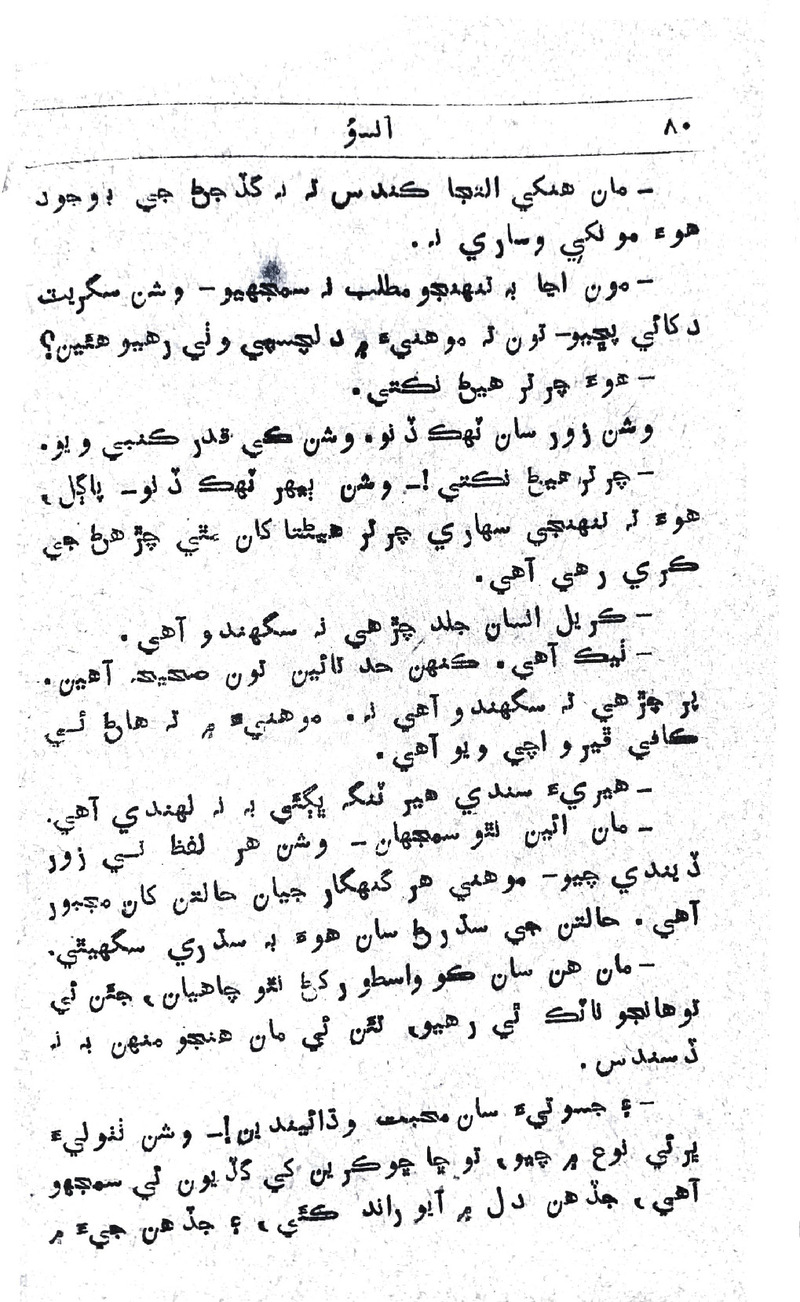 ۸۰ آنسؤ
– مان هنکي التجا ڪندس تہ نہ گڏجڻ جي باوجود
هوءَ مونکي وساري نہ.
– مون اڃا بہ تنهنجو مطلب نہ سمجهيو– وشن سگريٽ
دکائي پڇيو– تون تہ موهنيءَ ۾ دلچسپي وٺي رهيو هئين؟
– هوءَ چرتر هيڻ نڪتي.
وشن زور سان ٽهڪ ڏنو. وشن ڪي قدر ڪنبي ويو.
– چرتر هيڻ نڪتي!– وشن ٻيهر ٽهڪ ڏنو– پاڳل،
هوءَ تہ تنهنجي سهاري چرتر هيڻتا کان مٿي چڙهڻ جي
ڪري رهي آهي.
– ڪريل انسان جلد چڙهي نہ سگهندو آهي.
– ٺيڪ آهي. ڪنهن حد تائين تون صحيح آهين.
پر چڙهي تہ سگهندو آهي نہ. موهنيءَ ۾ تہ هاڻ ئي
ڪافي ڦيرو اچي ويو آهي.
– هيريءَ سندي هير ٽنگہ ڀڳئي بہ نہ لهندي آهي.
– مان ائين نٿو سمجهان– وشن هر لفظ تي زور
ڏيندي چيو– موهني هر گنهگار جيان حالتن کان مجبور
آهي. حالتن جي سڌرڻ سان هوءَ بہ سڌري سگهيٿي.
– مان هن سان ڪو واسطو رکڻ نٿو چاهيان، جئن ئي
توهانجو ناٽڪ ٿي رهيو، تئن ئي مان هنجو منهن بہ نہ
ڏسندس.
– ۽ جسوتيءَ سان محبت وڌائيندين!– وشن ٺٺوليءَ
ڀرئي نوع ۾ چيو، تو ڇا ڇوڪرين کي گڏيون ئي سمجهو
آهي، جڏهن دل ۾ آيو راند ڪئي، ۽ جڏهن جيءَ ۾